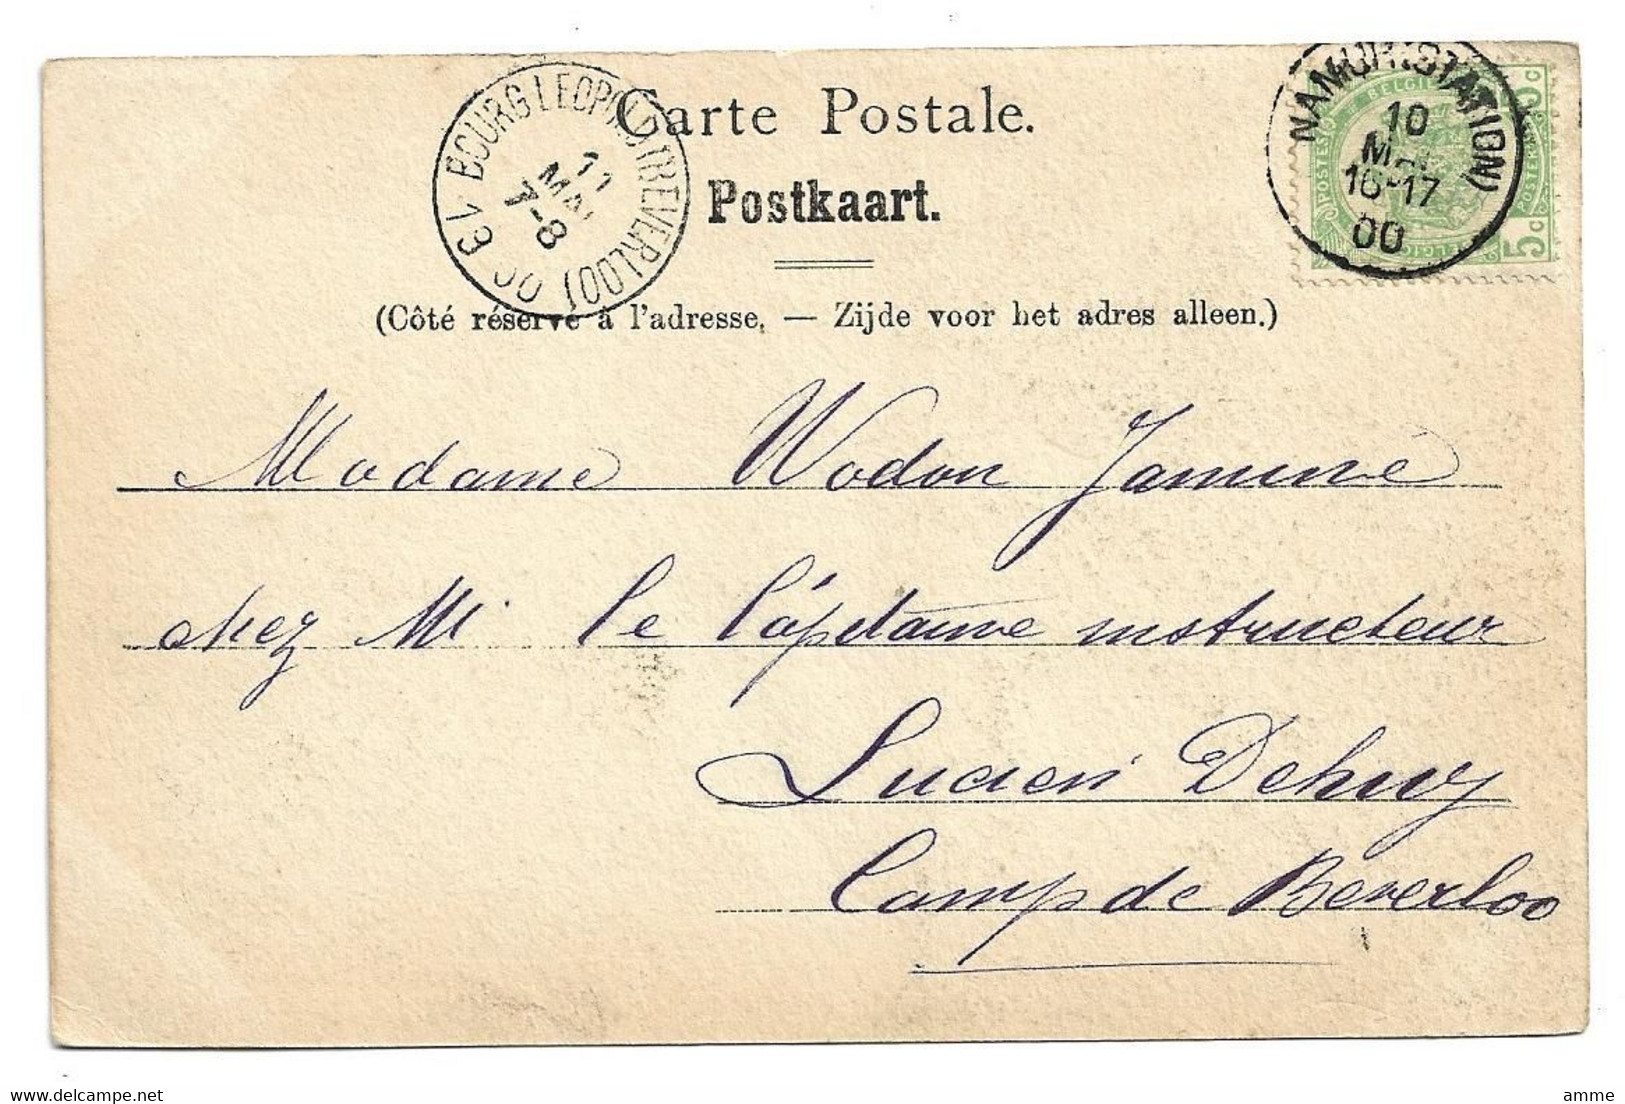 Carte Postale.
Postkaart.
(Côté réservé à l'adresse. — Zijde voor het adres alleen.)
BOURG LEOPOLD (BEVERLOO)
11
MAI
7-8
13
00
NAMUR (STATION)
10
MAI
16-17
00
POSTES BELGIQUE
5c 5c
Madame Wodon Jamine
chez Mr le Capitaine instructeur
Lucien Dehuy
Camp de Beverloo
www.delcampe.net
amme